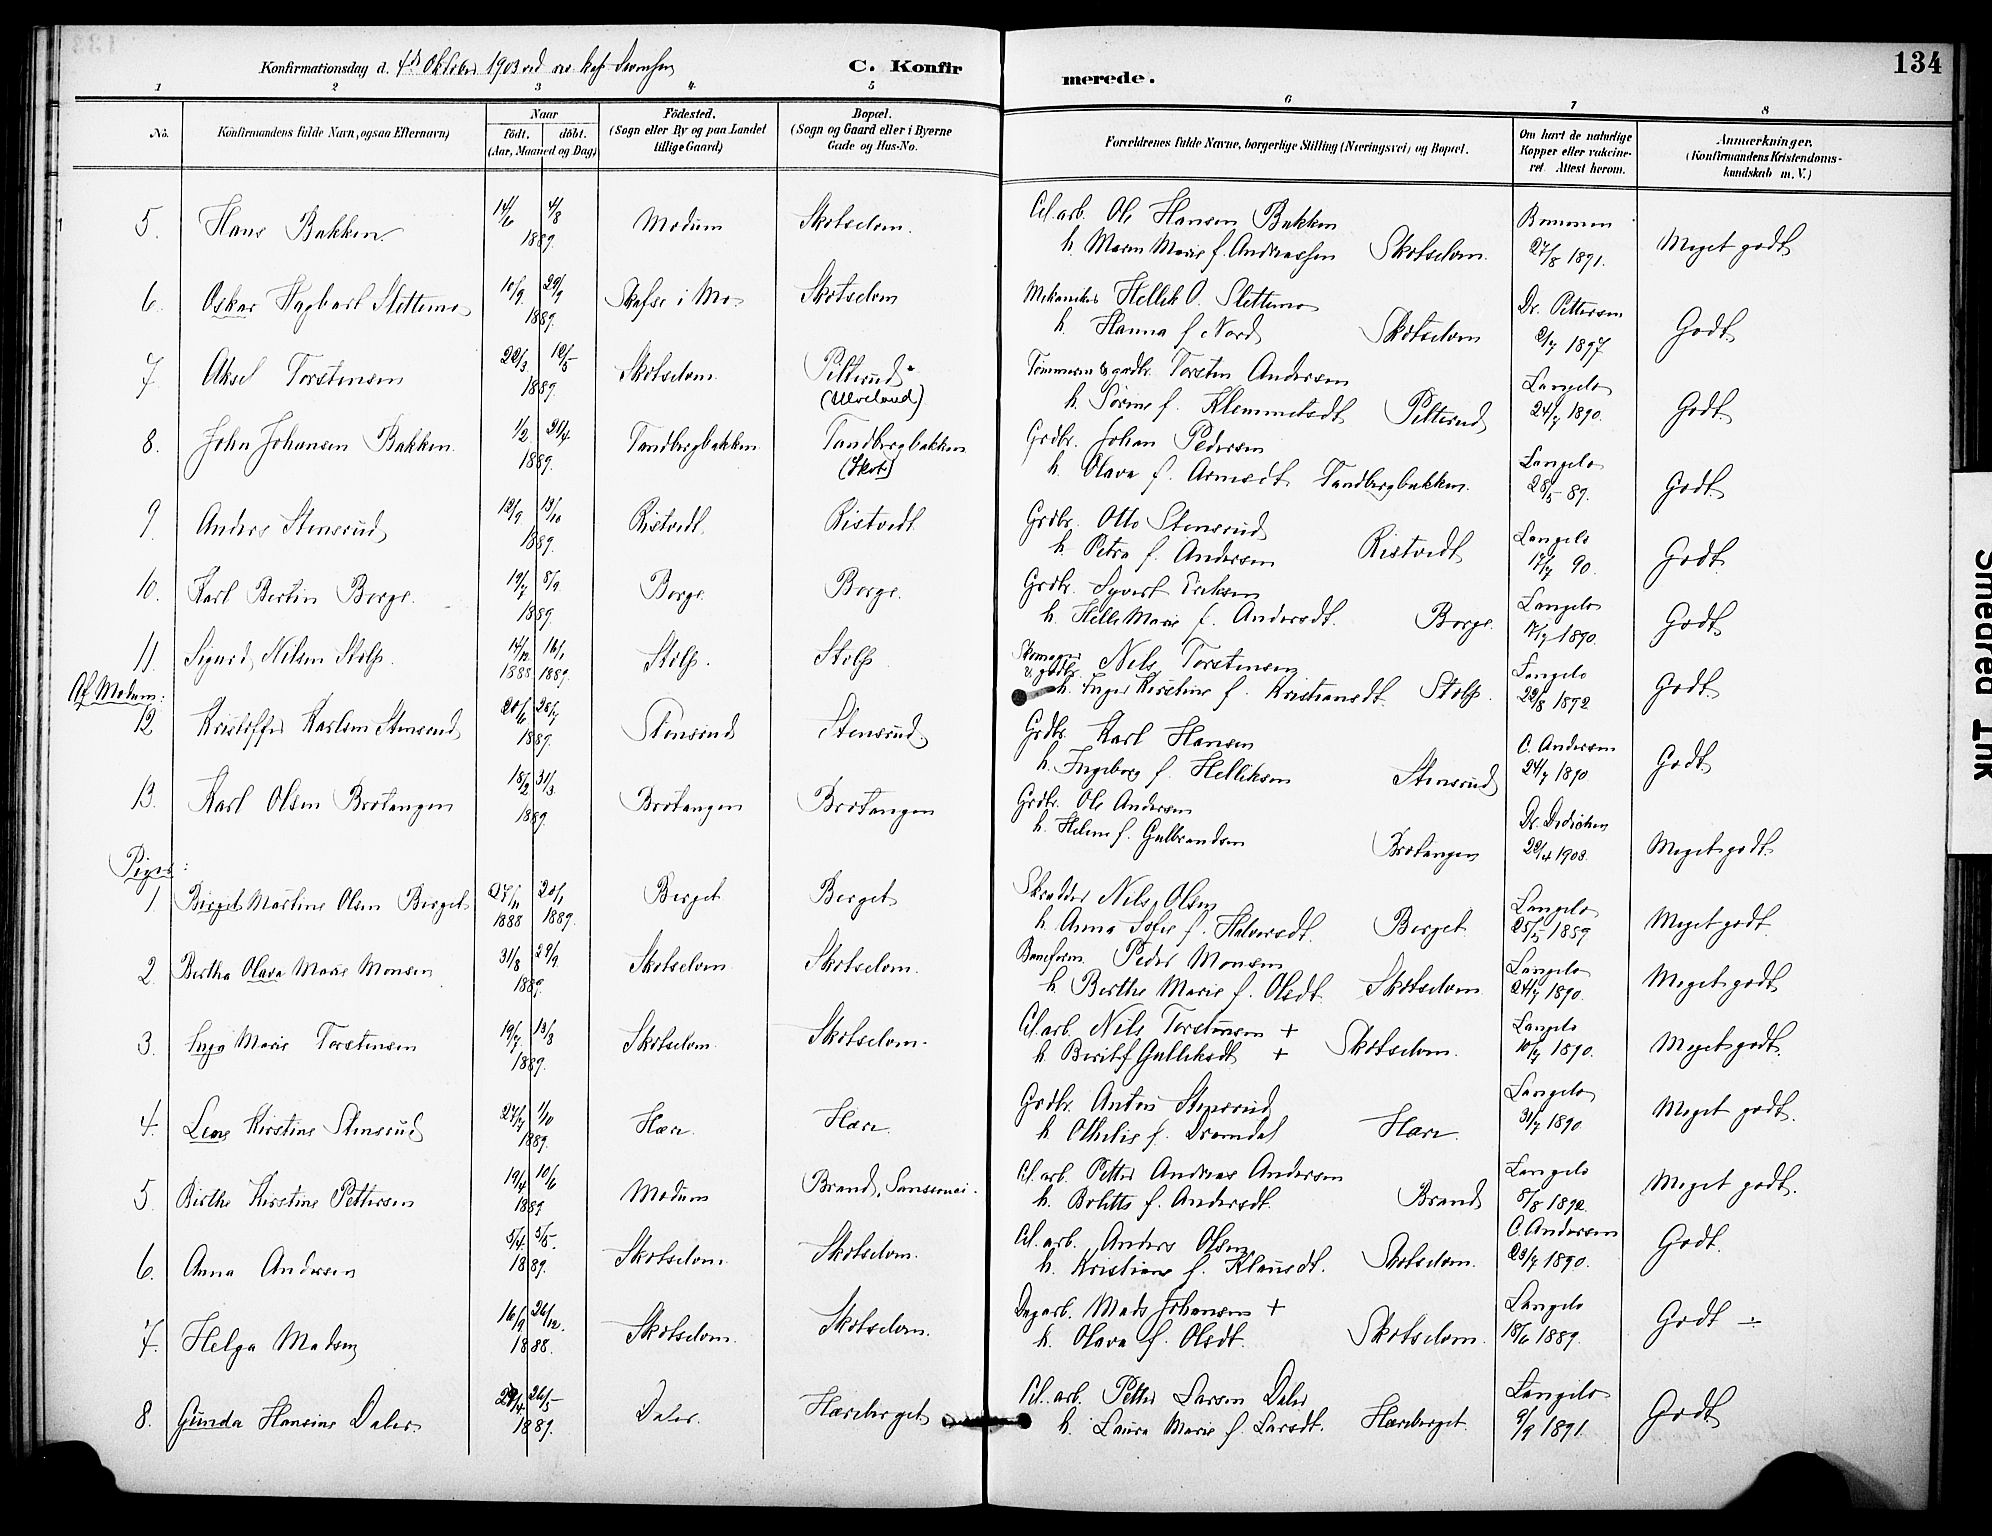 134
Konfirmationsdag d. 4de Oktober 1903 ved
C. Konfirmerede.
1 2 3 4 5 6 7 8
No. Konfirmandens fulde Navn, ogsaa Efternavn) Naar födt. döbt. (Aar, Maaned og Dag) Födested. (Sogn eller By og paa Landet tillige Gaard) Bopæl. (Sogn og Gaard eller i Byerne Gade og Hus-No. Forældrenes fulde Navne, borgerlige Stilling (Næringsvei) og Bopæl. Om havt de naturlige Kopper eller vakcineret. Attest herom. Anmærkninger. (Konfirmandens Kristendomskundskab m. V.)
5. Hans Bakken. 14/6 4/8 1889. Modum Skotselven. Cel. arb. Ole Hansen Bakken
h. Maren Marie f. Andreassen Skotselven. 27/8 1891. Meget godt
6. Oskar Hagbart Slettemo 10/9 29/9 1889. Skafse i Mo Skotselven Mekaniker Hellik O. Slettemo
h. Hanna f. Nord Skotselven Dr. Pettersen 2/7 1897. Godt
7. Aksel Torstensen 22/3 12/5 1889. Skotselven. Pelterud (Ulveland) Tömmerm. & grdbr. Torsten Andersen
h. Sörine f. Klemmetsdt Pelterud Langelo 24/7 1890. Godt
8. John Johansen Bakken. 1/2 21/4 1889. Tandbergbakken Tandbergbakken (Skots) Grdbr. Johan Pedersen
h. Olava f. Arnesdt Tandbergbakken. Langelo 28/5 - 89. Godt.
9. Anders Stensrud 12/9 13/10 1889. Ristvedt. Ristvedt. Grdbr. Otto Stensrud
h. Petra f. Andersen Ristvedt Langelo 17/7 90. Godt
10. Karl Bertin Borge. 19/7 8/9 1889 Borge. Borge. Grdbr. Syvert Eriksen
h. Helle Marie f. Andersdt. Borge. Langelo 17/7 1890. Godt
11. Sigurd Nilsen Stolp. 14/12 1888 16/1 1889. Stolp. Stolp. Skomager & grdbr. Nils Torstensen
h. Inger Kirstine f. Kristiansdt. Stolp. Langelo 22/8 1892 Godt.
Af Modum:
12 Kristoffer Karlsen Stensrud 20/6 28/7 1889. Stensrud Stensrud Grdbr. Karl Hansen
h. Ingeborg f. Helliksen Stensrud C. Andersen 24/7 1890 Godt
13. Karl Olsen Brotangen 18/2 31/3 1889. Brotangen Brotangen Grdbr. Ole Andersen
h. Helene f. Gulbrandsen Brotangen Dr. Dedichen 22/4 1903. Meget godt.
Piger:
1. Birget Martine Olsen Berget 27/11 1888 20/1 1889. Berget Berget Skrædder Nils Olsen
h. Anna Sofie f. Halvorsdt. Berget. Langelo 25/5 1889 Meget godt.
2. Bertha Olava Marie Monsen 31/8 29/9 1889. Skotselven. Skotselven. Baneform. Peder Monsen
h. Berthe Marie f. Olsdt. Skotselven. Langelo 24/7 1890. Meget godt
3. Inga Marie Torstensen 19/7 13/8 1889. Skotselven. Skotselven. Cel. arb. Nils Torstensen +
h. Berit f. Gulliksdt + Skotselven. Langelo 10/7 1890. Meget godt.
4. Lene Kirstine Stensrud 27/7 1/10 1889. Hære Hære Grdbr. Anton Stensrud
h. Othelie f. Dramdal Hære. Langelo 31/7 1890 Meget godt.
5 Birthe Kirstine Pettersen 19/4 10/6 1889 Modum Brand, Sansemoi. Cel. arb. Petter Andreas Andersen
h. Bolette f. Andersdt. Brand Langelo 8/8 1892. Meget godt.
6. Anna Andersen 5/4. 5/5. 1889. Skotselven. Skotselven. Cel. arb. Anders Olsen
h. Kristiane f. Klausdt. Skotselven. C. Andersen 23/7 1890. Godt.
7. Helga Madsen 16/9 26/12. 1888. Skotselven. Skotselven. Dagarb. Mads Johansen +
h. Olava f. Olsdt. Skotselven. Langelo 18/6 1889. Godt ÷
8. Gunda Hansine Daler 29/4 26/5 1889. Daler. Hæreberget Cel. arb. Petter Larsen Daler
h. Laura Marie f. Larsdt. Hæreberget. Langelo 9/9 1891. Godt
Smedred Ink